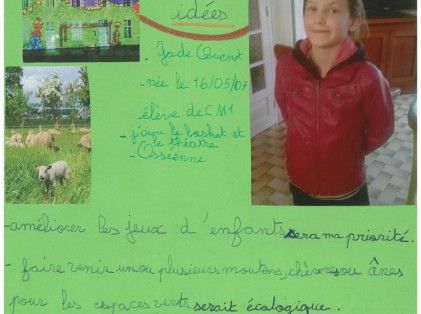 idées
- Jade Quenot
- née le 16/05/07
élève de CM1
- j'aime le basket et
le théâtre
- Osséenne
- améliorer les jeux d'enfants sera ma priorité.
- faire venir un ou plusieurs moutons, chèvres ou ânes
pour les espaces verts serait écologique.